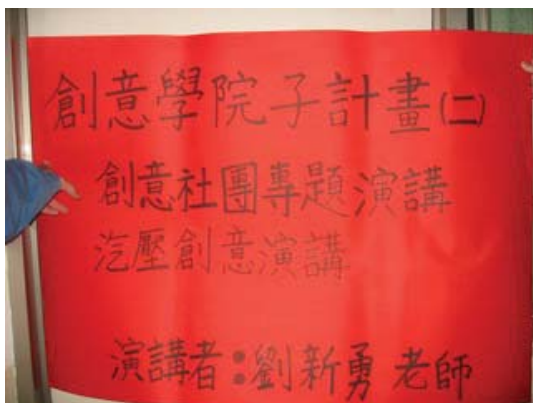 創意學院子計畫(二)
創意社團專題演講
汔壓創意演講
演講者:劉新勇 老師